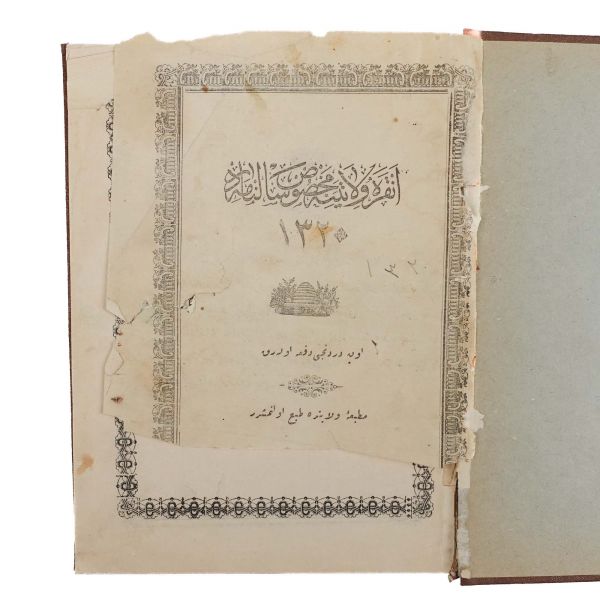 انقره ولایتنه مخصوص سالنامه در
١٣٢٠
١٣٢٠
اون دردنجی دفعه اوله رق
مطبعهٔ ولایتده طبع اولنمشدر